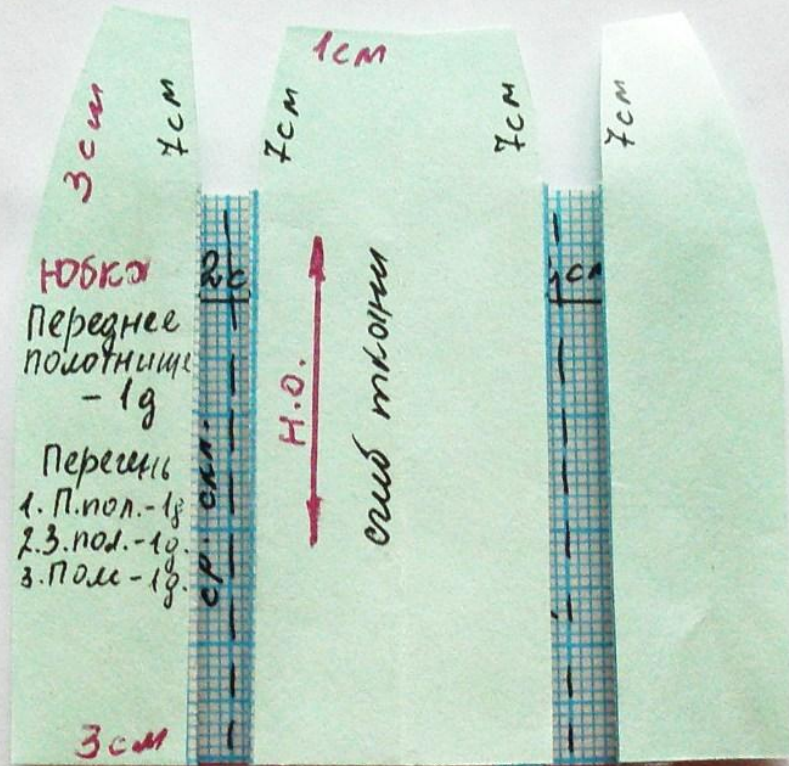 1см
3см
7см
7см
7см
7см
Юбка
Переднее
полотнище
- 1д
Перечень
1. П.пол.-1д
2. З.пол.-1д.
3. Пояс-1д.
3см
ср. скл.
Н.О.
сгиб ткани